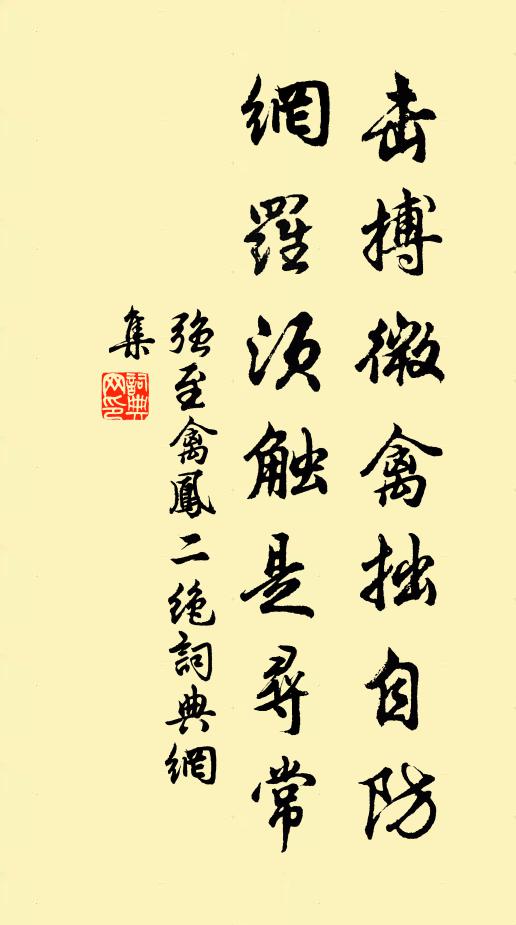 击搏微禽拙自防
網羅須触是尋常
强至禽鳳二绝詞典網
集
詞典
网印